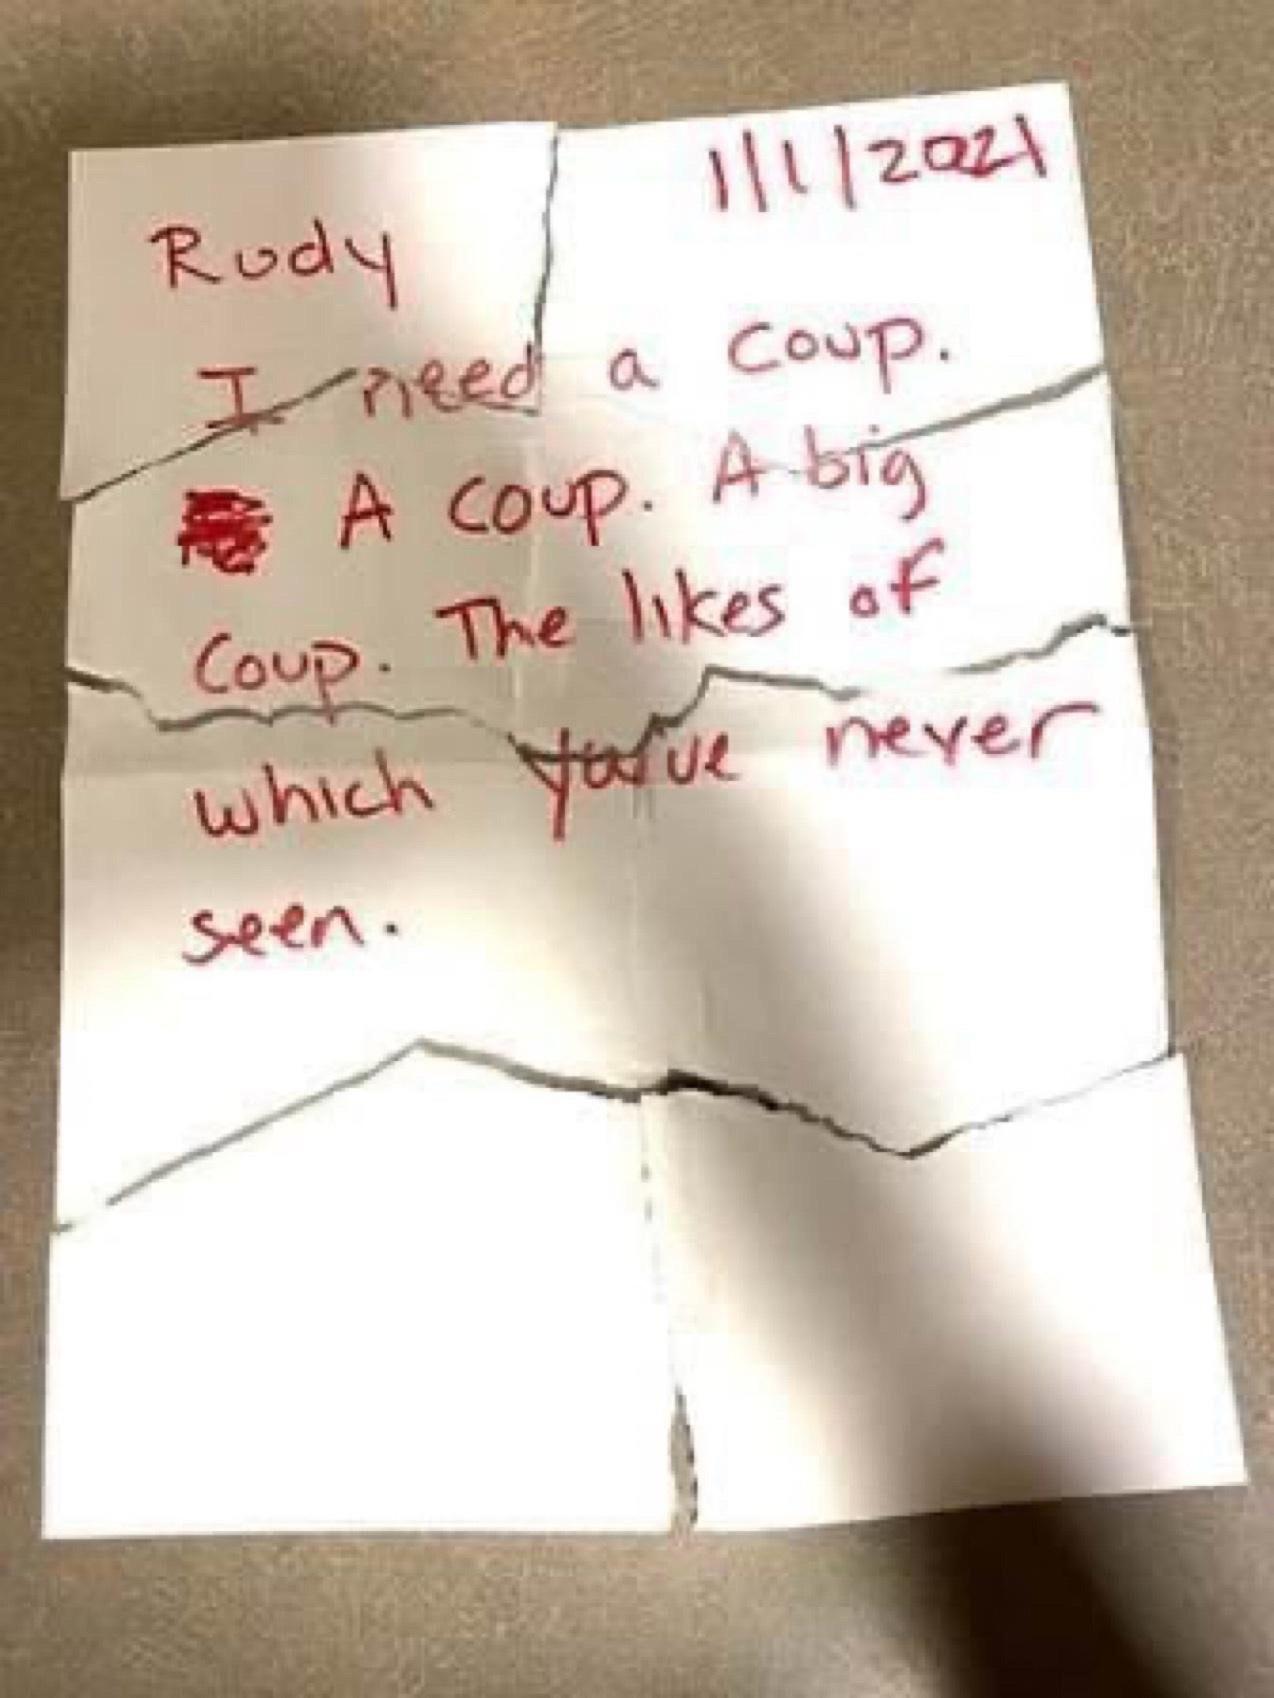 1/1/2021
Rudy
I need a coup.
A coup. A big
Coup. The likes of
which you've never
seen.